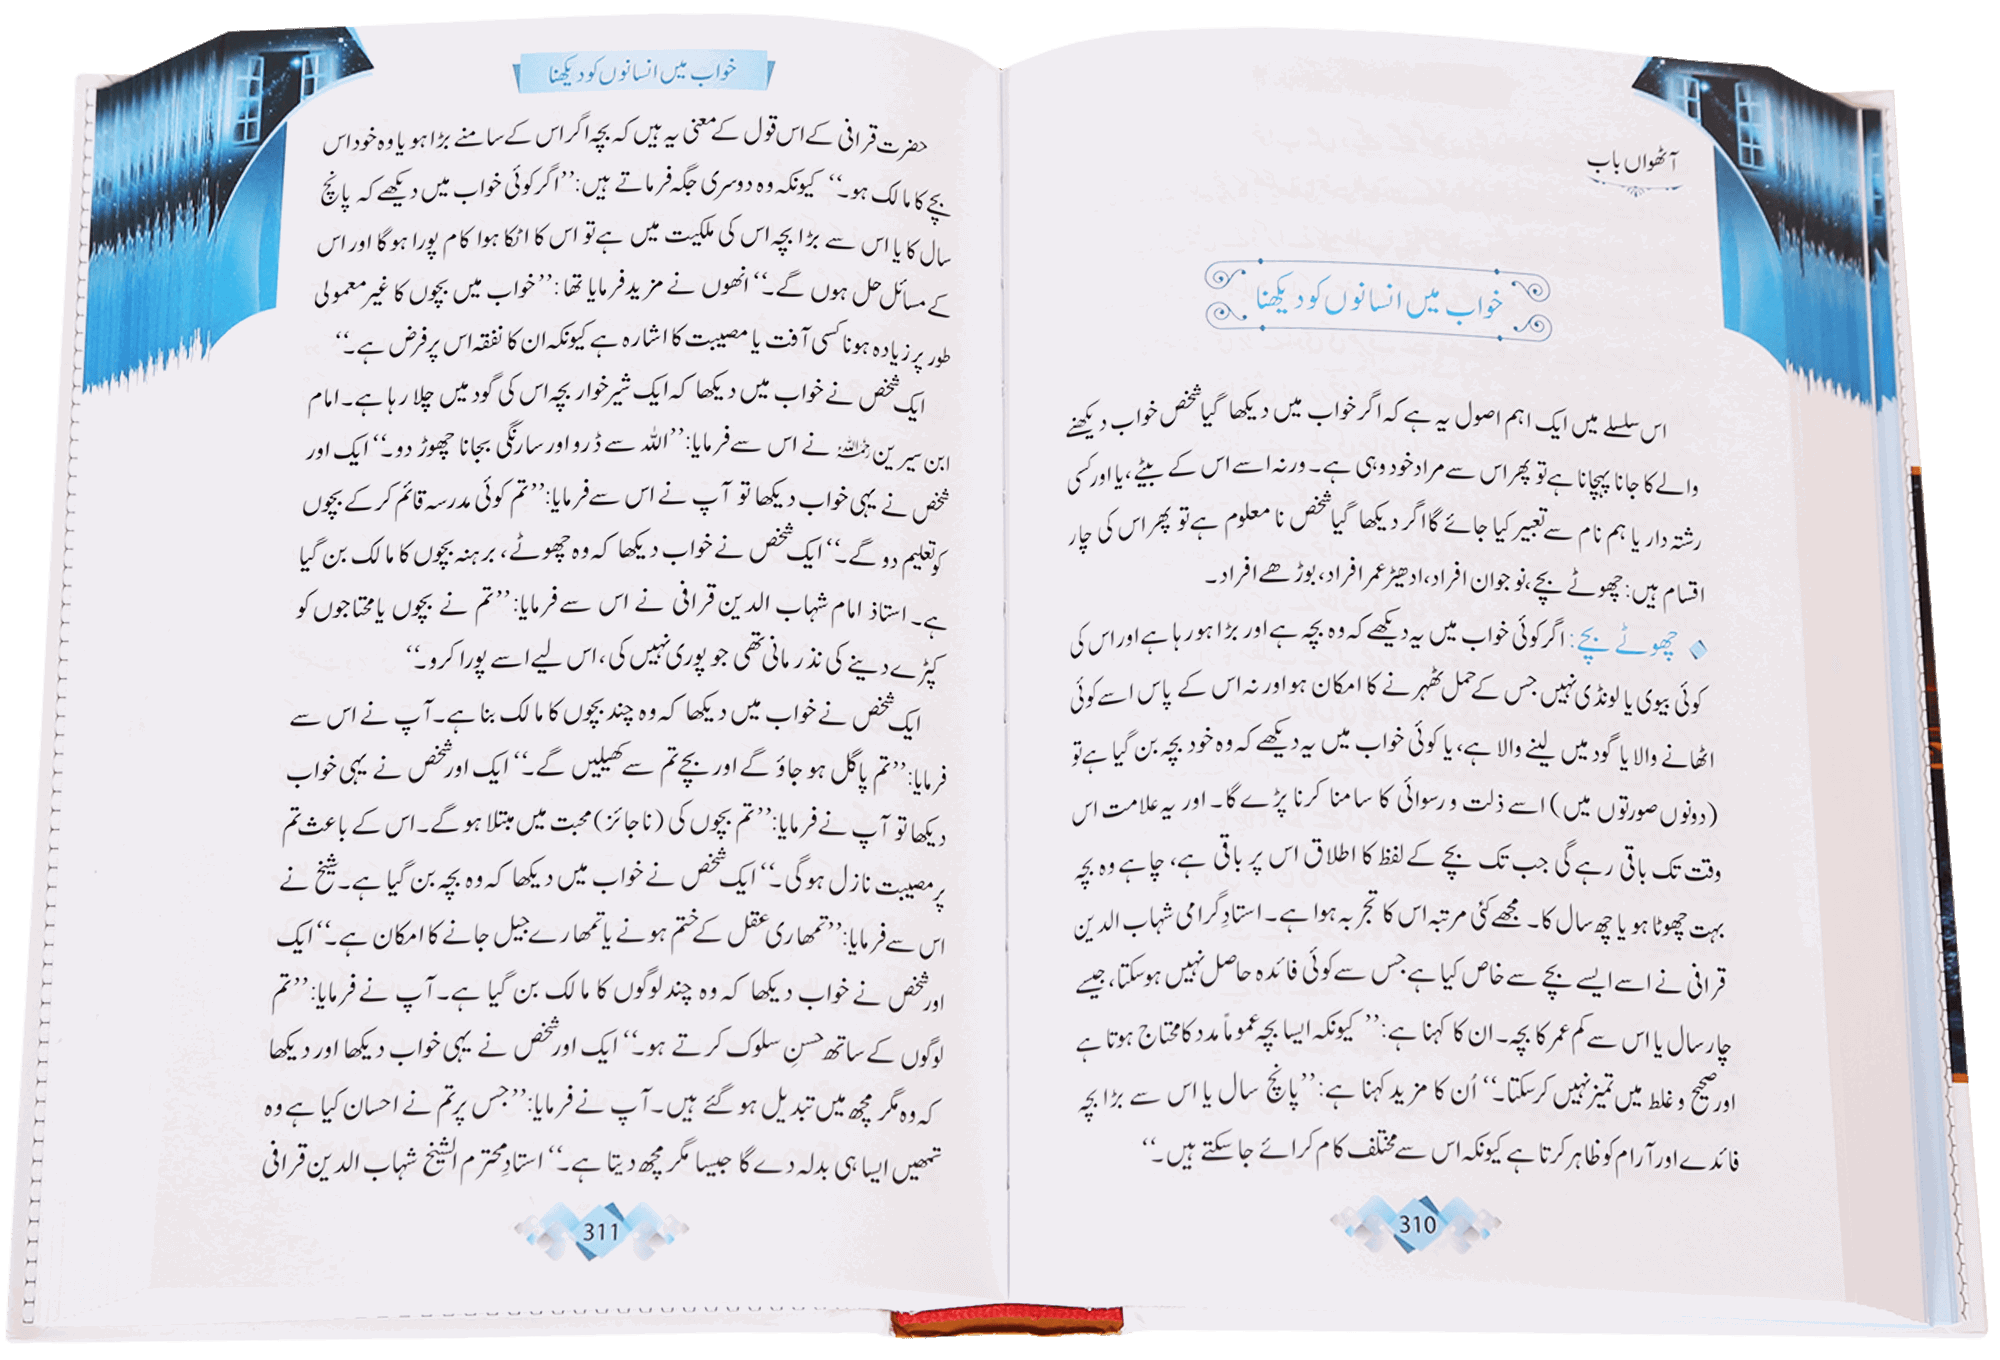 آٹھواں باب
خواب میں انسانوں کو دیکھنا
اس سلسلے میں ایک اہم اصول یہ ہے کہ اگر خواب میں دیکھا گیا شخص خواب دیکھنے
والے کا جانا پہچانا ہے تو پھر اس سے مراد خود وہی ہے۔ ورنہ اسے اس کے بیٹے، یا اور کسی
رشتہ دار یا ہم نام سے تعبیر کیا جائے گا اگر دیکھا گیا شخص نا معلوم ہے تو پھر اس کی چار
اقسام ہیں: چھوٹے بچے، نوجوان افراد، ادھیڑ عمر افراد، بوڑھے افراد۔
چھوٹے بچے: اگر کوئی خواب میں یہ دیکھے کہ وہ بچہ ہے اور بڑا ہو رہا ہے اور اس کی
کوئی بیوی یا لونڈی نہیں جس کے حمل ٹھہرنے کا امکان ہو اور نہ اس کے پاس اسے کوئی
اٹھانے والا یا گود میں لینے والا ہے، یا کوئی خواب میں یہ دیکھے کہ وہ خود بچہ بن گیا ہے تو
(دونوں صورتوں میں) اسے ذلت و رسوائی کا سامنا کرنا پڑے گا۔ اور یہ علامت اس
وقت تک باقی رہے گی جب تک بچے کے لفظ کا اطلاق اس پر باقی ہے، چاہے وہ بچہ
بہت چھوٹا ہو یا چھ سال کا۔ مجھے کئی مرتبہ اس کا تجربہ ہوا ہے۔ استادِ گرامی شہاب الدین
قرافی نے اسے ایسے بچے سے خاص کیا ہے جس سے کوئی فائدہ حاصل نہیں ہوسکتا، جیسے
چار سال یا اس سے کم عمر کا بچہ۔ ان کا کہنا ہے: ’’ کیونکہ ایسا بچہ عموماً مدد کا محتاج ہوتا ہے
اور صحیح و غلط میں تمیز نہیں کرسکتا۔‘‘ اُن کا مزید کہنا ہے: ’’پانچ سال یا اس سے بڑا بچہ
فائدے اور آرام کو ظاہر کرتا ہے کیونکہ اس سے مختلف کام کرائے جا سکتے ہیں۔‘‘
310
خواب میں انسانوں کو دیکھنا
حضرت قرافی کے اس قول کے معنی یہ ہیں کہ بچہ اگر اس کے سامنے بڑا ہو یا وہ خود اس
بچے کا مالک ہو۔‘‘ کیونکہ وہ دوسری جگہ فرماتے ہیں: ’’اگر کوئی خواب میں دیکھے کہ پانچ
سال کا یا اس سے بڑا بچہ اس کی ملکیت میں ہے تو اس کا اٹکا ہوا کام پورا ہوگا اور اس
کے مسائل حل ہوں گے۔‘‘ انھوں نے مزید فرمایا تھا: ’’خواب میں بچوں کا غیر معمولی
طور پر زیادہ ہونا کسی آفت یا مصیبت کا اشارہ ہے کیونکہ ان کا نفقہ اس پر فرض ہے۔‘‘
ایک شخص نے خواب میں دیکھا کہ ایک شیر خوار بچہ اس کی گود میں چلا رہا ہے۔ امام
ابن سیرین رحمہ اللہ نے اس سے فرمایا: ’’اللہ سے ڈرو اور سارنگی بجانا چھوڑ دو۔‘‘ ایک اور
شخص نے یہی خواب دیکھا تو آپ نے اس سے فرمایا: ’’تم کوئی مدرسہ قائم کرکے بچوں
کو تعلیم دو گے۔‘‘ ایک شخص نے خواب دیکھا کہ وہ چھوٹے، برہنہ بچوں کا مالک بن گیا
ہے۔ استاذ امام شہاب الدین قرافی نے اس سے فرمایا: ’’تم نے بچوں یا محتاجوں کو
کپڑے دینے کی نذر مانی تھی جو پوری نہیں کی، اس لیے اسے پورا کرو۔‘‘
ایک شخص نے خواب میں دیکھا کہ وہ چند بچوں کا مالک بنا ہے۔ آپ نے اس سے
فرمایا: ’’تم پاگل ہو جاؤ گے اور بچے تم سے کھیلیں گے۔‘‘ ایک اور شخص نے یہی خواب
دیکھا تو آپ نے فرمایا: ’’تم بچوں کی (ناجائز) محبت میں مبتلا ہو گے۔ اس کے باعث تم
پر مصیبت نازل ہوگی۔‘‘ ایک شخص نے خواب میں دیکھا کہ وہ بچہ بن گیا ہے۔ شیخ نے
اس سے فرمایا: ’’تمھاری عقل کے ختم ہونے یا تمھارے جیل جانے کا امکان ہے۔‘‘ ایک
اور شخص نے خواب دیکھا کہ وہ چند لوگوں کا مالک بن گیا ہے۔ آپ نے فرمایا: ’’تم
لوگوں کے ساتھ حسنِ سلوک کرتے ہو۔‘‘ ایک اور شخص نے یہی خواب دیکھا اور دیکھا
کہ وہ مگر مچھ میں تبدیل ہو گئے ہیں۔ آپ نے فرمایا: ’’جس پر تم نے احسان کیا ہے وہ
تمھیں ایسا ہی بدلہ دے گا جیسا مگر مچھ دیتا ہے۔‘‘ استادِ محترم الشیخ شہاب الدین قرافی
311